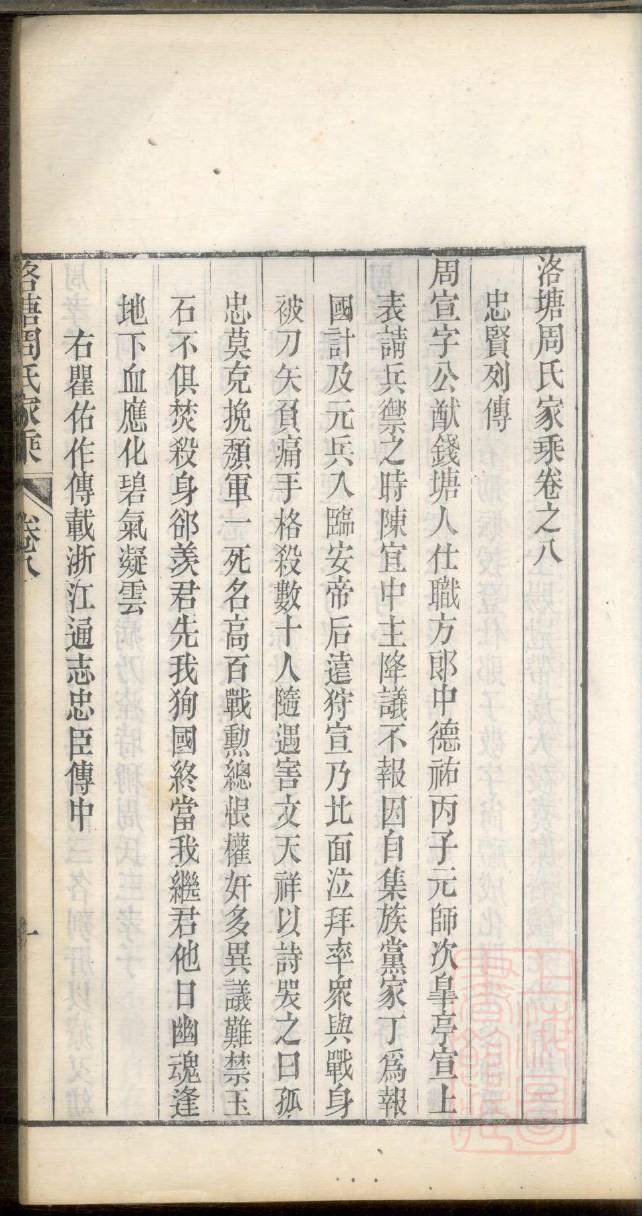 洛塘周氏家乘卷之八
忠賢列傳
周宣字公猷錢塘人仕職方郎中德祐丙子元師次臯亭宣上
表請兵禦之時陳宜中主降議不報因自集族黨家丁爲報
國計及元兵入臨安帝后遠狩宣乃北面泣拜率衆與戰身
被刀矢負痛手格殺數十人隨遇害文天祥以詩哭之曰孤
忠莫克挽頽軍一死名高百戰勲總恨權奸多異議難禁玉
石不俱焚殺身郤羨君先我狥國終當我繼君他日幽魂逢
地下血應化碧氣凝雲
右瞿佑作傳載浙江通志忠臣傳中
洛塘周氏家乘
卷八
一